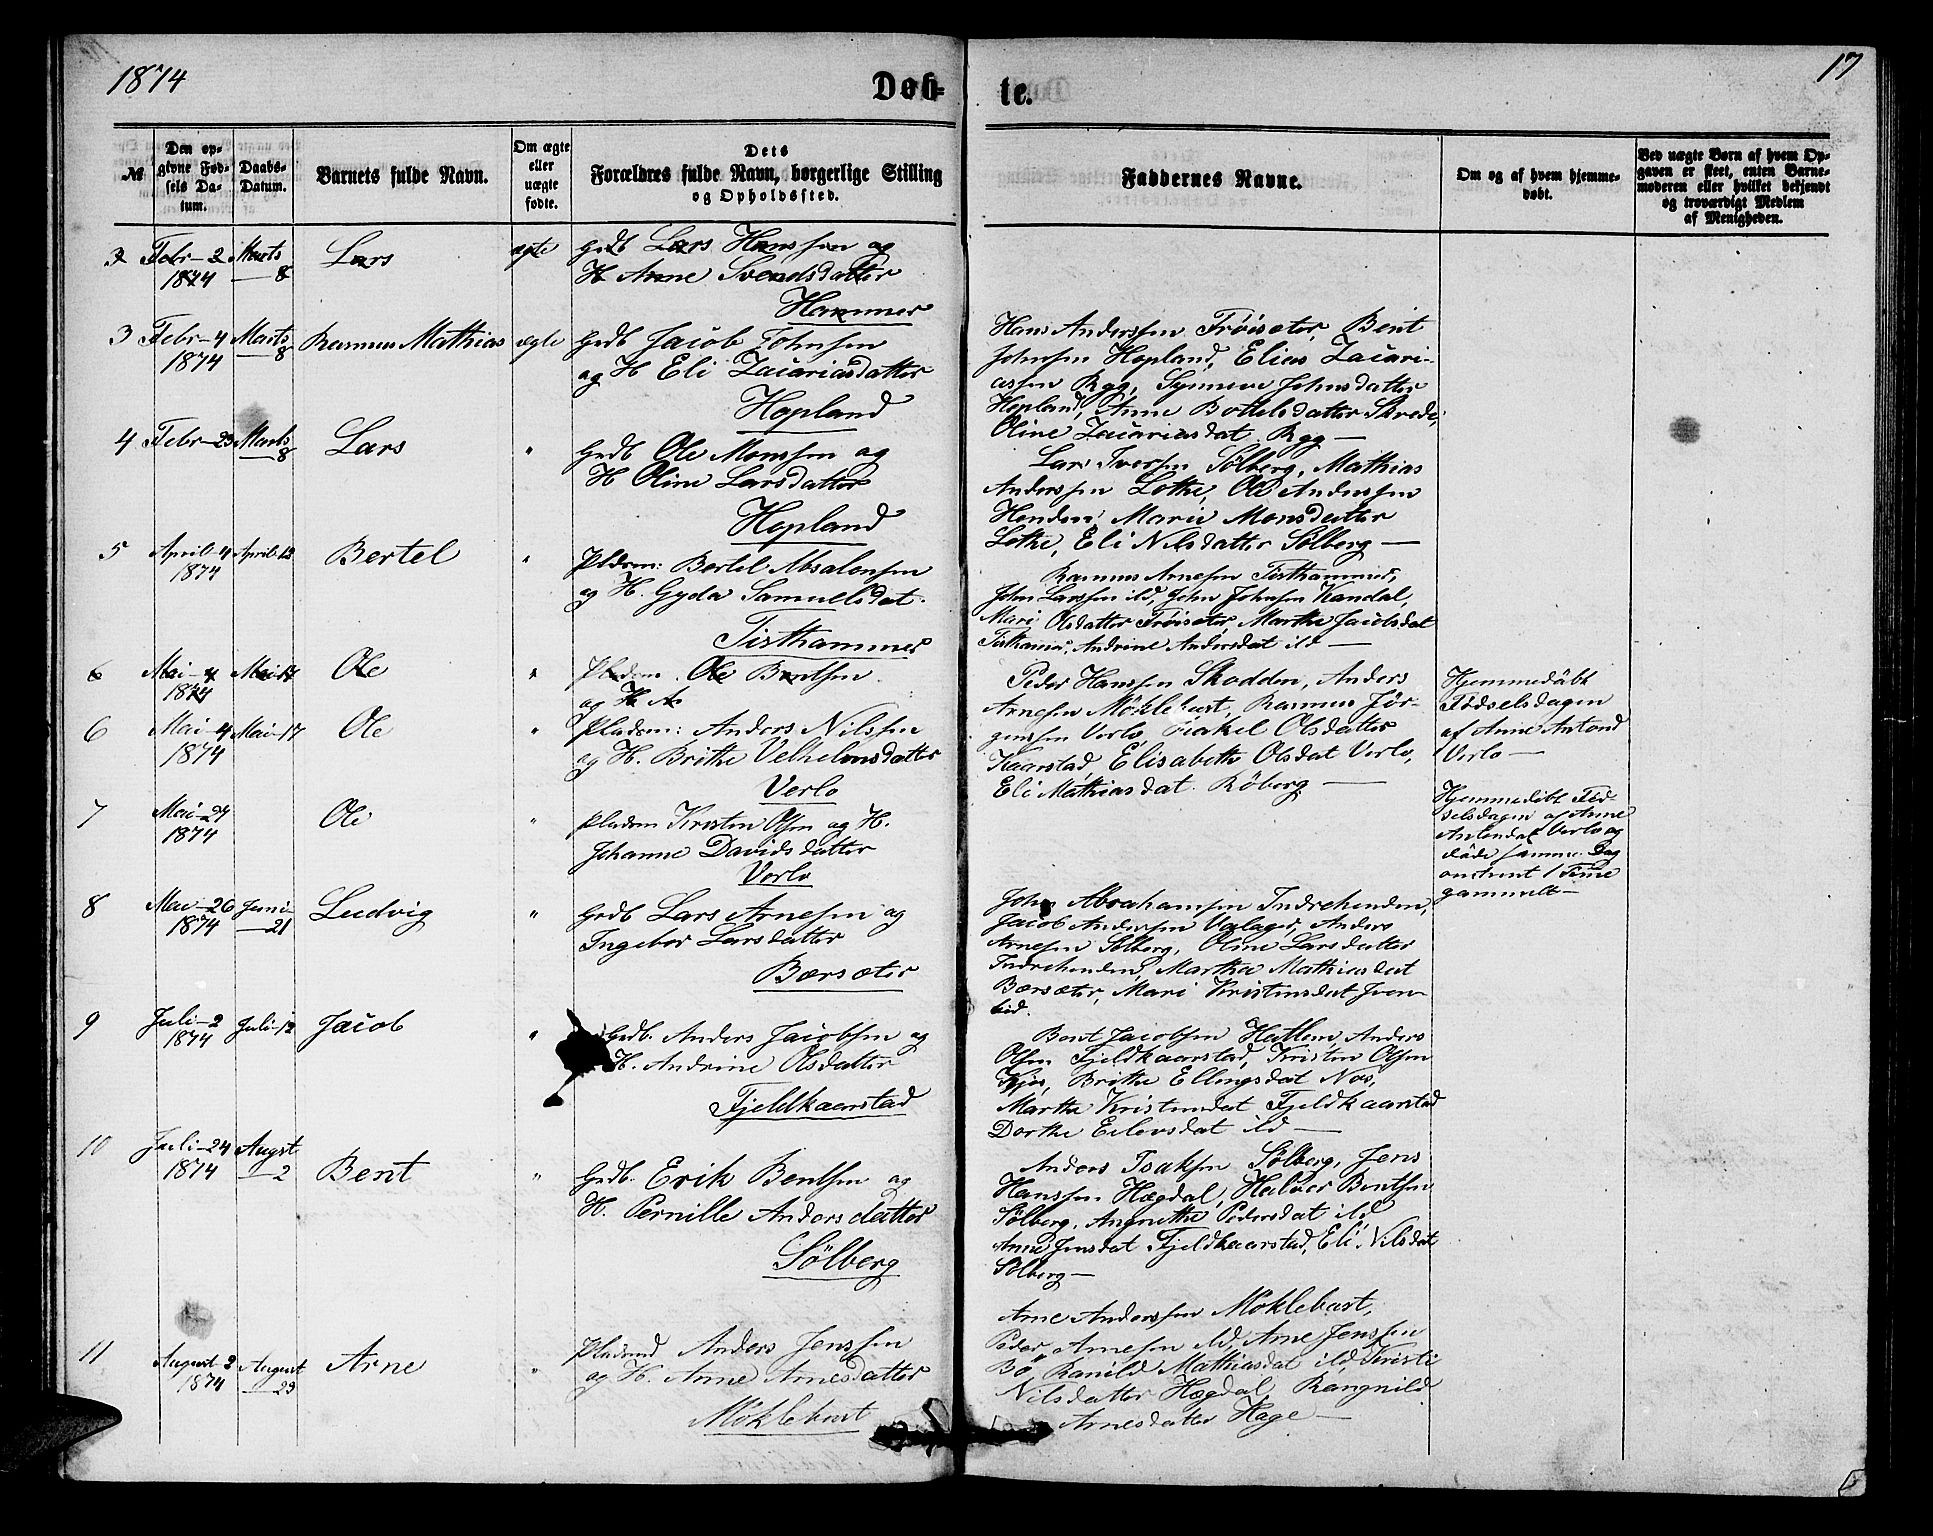 1874
17
Døb-
te.
№
Den op-
givne Fød-
sels Da-
tum.
Daabs-
Datum.
Barnets fulde Navn.
Om ægte
eller
uægte
fødte.
Dets
Forældres fulde Navn, borgerlige Stilling
og Opholdssted.
Faddernes Navne.
Om og af hvem hjemme-
døbt.
Ved uægte Børn af hvem Op-
gaven er skeet, enten Barne-
moderen eller hvilket bekjendt
og troværdigt Medlem
af Menigheden.
3 Febr-2 Marts Lars ægte Grdb Lars Hanssen og
1874 8 H Anne Svendsdatter
Hammer
3 Febr-4 Marts Rasmus Mathias ægte Grdb Jacob Johnsen
1874 8 og H Eli Zacariasdatter
Hopland
Hans Anderssen Frøisæter, Bent
Johnsen Hopland, Elias Zacari-
assen Ryg, Synneve Johnsdatter
Hopland, Anne Bottelsdatter Skrede,
Oline Zacariasdat. Ryg —
4 Febr-23 Marts Lars " Grdb Ole Monssen og
8 H Oline Larsdatter
Hopland
Lars Iversen Sølberg, Mathias
Anderssen Lothe, Ole Anderssen
Henden, Marie Monsdatter
Lothe, Eli Nilsdatter Sølberg —
5 April-4 April-12 Bertel " Pladsm: Bertel Absalonsen
1874 og H. Gyda Samuelsdat.
Tisthammer
Rasmus Arnesen Tisthammer,
John Larssen ibd, John Johnsen Kandal,
Mari Olsdatter Frøisæter, Marthe Jacobsdat
Tisthamr, Andrine Andersdat ibd —
6 Mai-4 Mai-17 Ole " Pladsm. Ole Bentsen
1874 og H A
6 Mai-4 Mai-17 Ole " Pladsm: Anders Nilssen
1874 og H. Brithe Velhelmsdatter
Verlo
Peder Hanssen Skodden, Anders
Arnesen Möklebust, Rasmus Jør-
genssen Verlo, Rakel Olsdatter
Kaarstad, Elisabeth Olsdat Verlo,
Eli Mathiasdat. Röberg —
Hjemmedöbt
Födselsdagen
af Anne Antond
Verlo —
7 Mai-24 Ole " Pladsm Kristen Olsen og H.
1874 Johanne Davidsdatter
Verlo
Hjemmedöbt Föd-
selsdagen af Anne
Antondat Verlo og
döde samme Dag
omtrent 1 Time
gammelt —
8 Mai-26 Juni- Ludvig " Grdb Lars Arnesen og
1874 21 Ingebor Larsdatter
Bærsæter
John Abrahamsen Indrehenden,
Jacob Andersen Valager, Anders
Arnesen Sölberg, Oline Larsdatter
Indrehenden, Marthe Mathiasdat
Bærsæter, Mari Kristensdat
9 Juli-2 Juli-12 Jacob " Grdb. Anders Jacobsen og
1874 H. Andrine Olsdatter
Fjeldkaarstad
Bent Jacobsen Hatlem, Anders
Olsen Fjeldkaarstad, Kristen Olsen
Kjøs, Brithe Ellingsdat Nos,
Marthe Kristensdat Fjeldkaarstad
Dorthe Eilevsdat ibd —
10 Juli-24 Augst Bent " Grdb. Erik Bentsen og
1874 2 H. Pernille Andersdatter
Sölberg
Anders Isaksen Sölberg, Jens
Hanssen Hægdal, Halvor Bentsen
Sölberg, Angnethe Pedersdat ibd
Anne Jensdat Fjeldkaarstad, Eli Nilsdat
Sölberg —
11 August-2 August Arne " Pladsmd Anders Jenssen
1874 23 og H. Anne Arnesdatter
Möklebust
Arne Anderssen Möklebust,
Peder Arnesen ibd, Arne Jenssen
Bö, Ranild Mathiasdat ibd, Kristi
Nilsdatter Hægdal, Rangnild
Arnesdatter Hage —